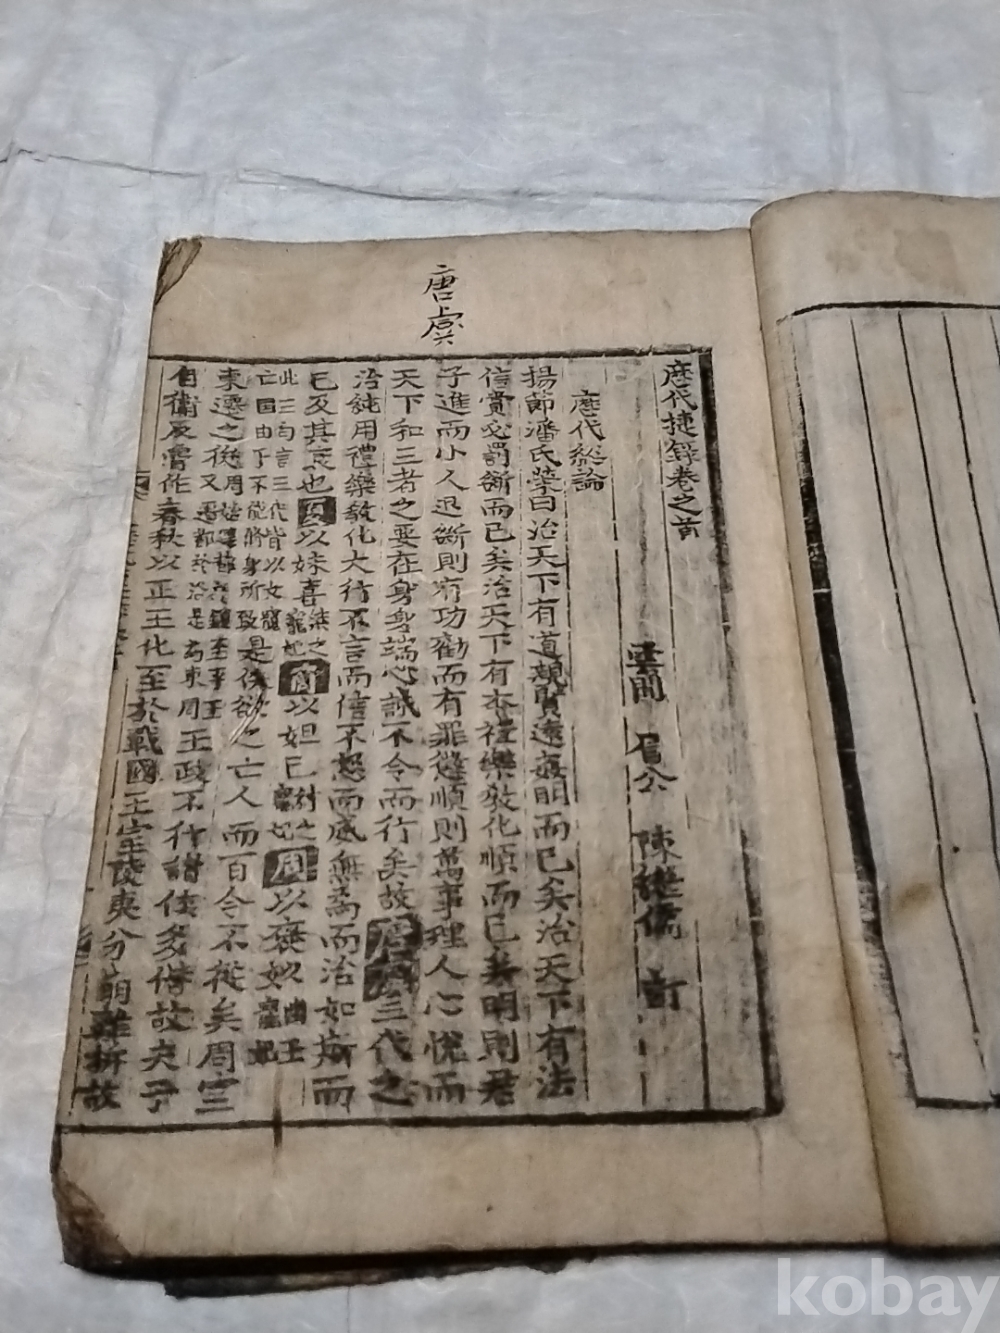 唐虞
歷代捷錄卷之首
雲間 眉公 陳繼儒 書
歷代總論
揚節潘氏榮曰治天下有道親賢遠姦明而已矣治天下有法
信賞必罰斷而已矣治天下有本禮樂敎化順而已矣明則君
子進而小人退斷則有功勸而有罪懲順則萬事理人心悅而
天下和三者之要在身身端心誠不令而行矣故唐虞三代之
治純用禮樂敎化大行不言而信不怒而威無爲而治如斯而
已及其衰也夏以妹喜桀之寵妃商以妲己紂之寵妃周以褒姒幽王寵妃
此三句言三代皆以女寵
亡國由于不能將身所致是侯欲之亡人而百令不從矣周室
東遷之後又周始遷都於洛是爲東周王政不行諸侯多僭故夫子
自衛反魯作春秋以正王化至於戰國王室陵夷分崩離拆故
kobay